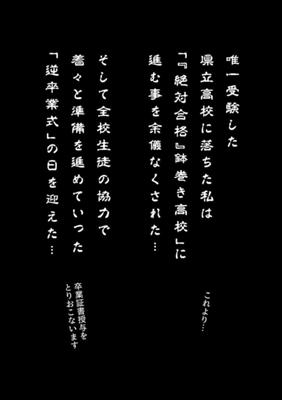 唯一受験した
県立高校に落ちた私は
「『絶対合格』鉢巻き高校」に
進む事を余儀なくされた…
これより…
そして全校生徒の協力で
着々と準備を進めていった
「逆卒業式」の日を迎えた…
卒業証書授与を
とりおこないます